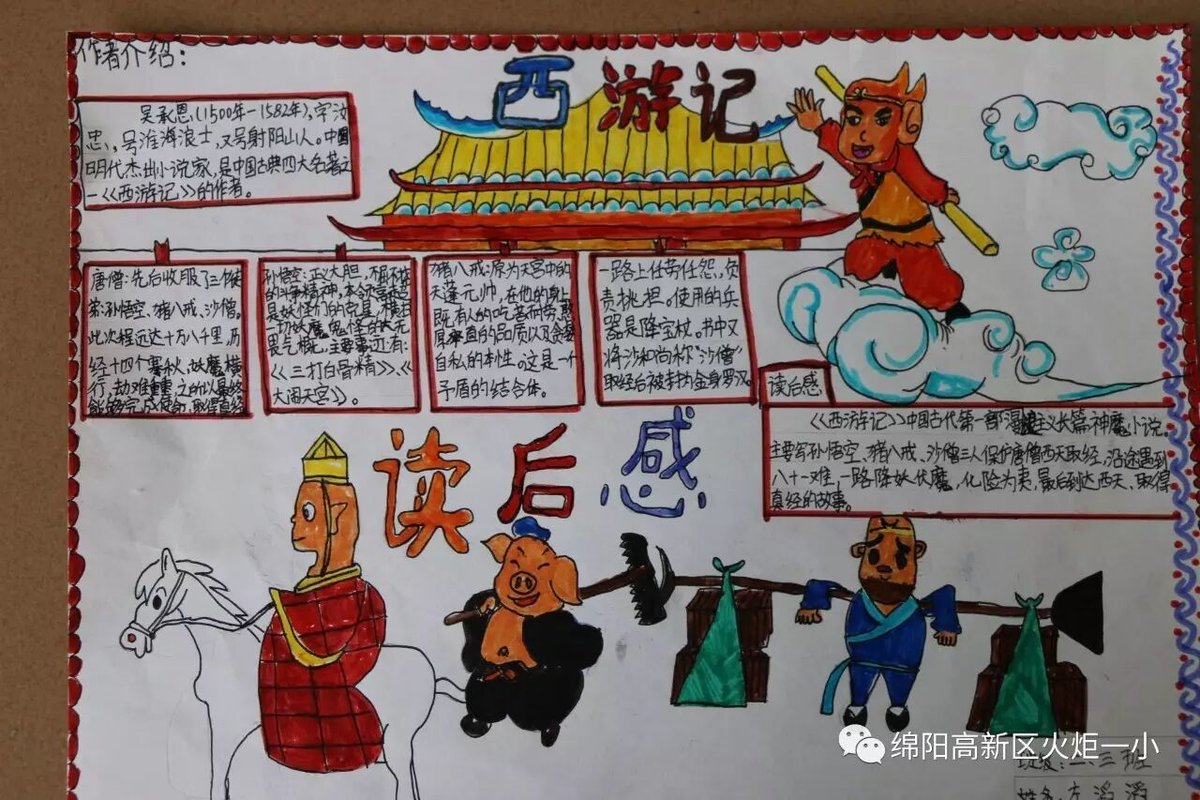 作者介绍：
吴承恩(1500年-1582年),字汝
忠,号淮海浪士,又号射阳山人。中国
明代杰出小说家,是中国古典四大名著之
一<<西游记>>的作者。
西游记
唐僧:先后收服了三个徒
弟:孙悟空、猪八戒、沙僧。
此次程远达十万八千里,历
经十四个寒秋,妖魔横
行,劫难重重
能够完成使命,取得真经
孙悟空:正义大胆,不屈不挠
的斗争精神,
是妖怪们的克星,横扫
一切妖魔鬼怪的大无
畏气概,主要事迹有:
<<三打白骨精>>、<<
大闹天宫>>。
猪八戒:原为天宫中的
天蓬元帅,在他的身上
既有人的吃苦耐劳,憨
厚率直的品质以及贪婪
自私的本性。这是一个
矛盾的结合体。
一路上任劳任怨,负
责挑担。使用的兵
器是降宝杖。书中又
将沙和尚称"沙僧"
取经后被封为金身罗汉。
读后感
<<西游记>>中国古代第一部浪漫主义长篇神魔小说,
主要写孙悟空、猪八戒、沙僧三人保护唐僧西天取经,沿途遇到
八十一难,一路降妖伏魔,化险为夷,最后到达西天、取得
真经的故事。
读后感
绵阳高新区火炬一小
班级:二、三班
姓名:左滔滔